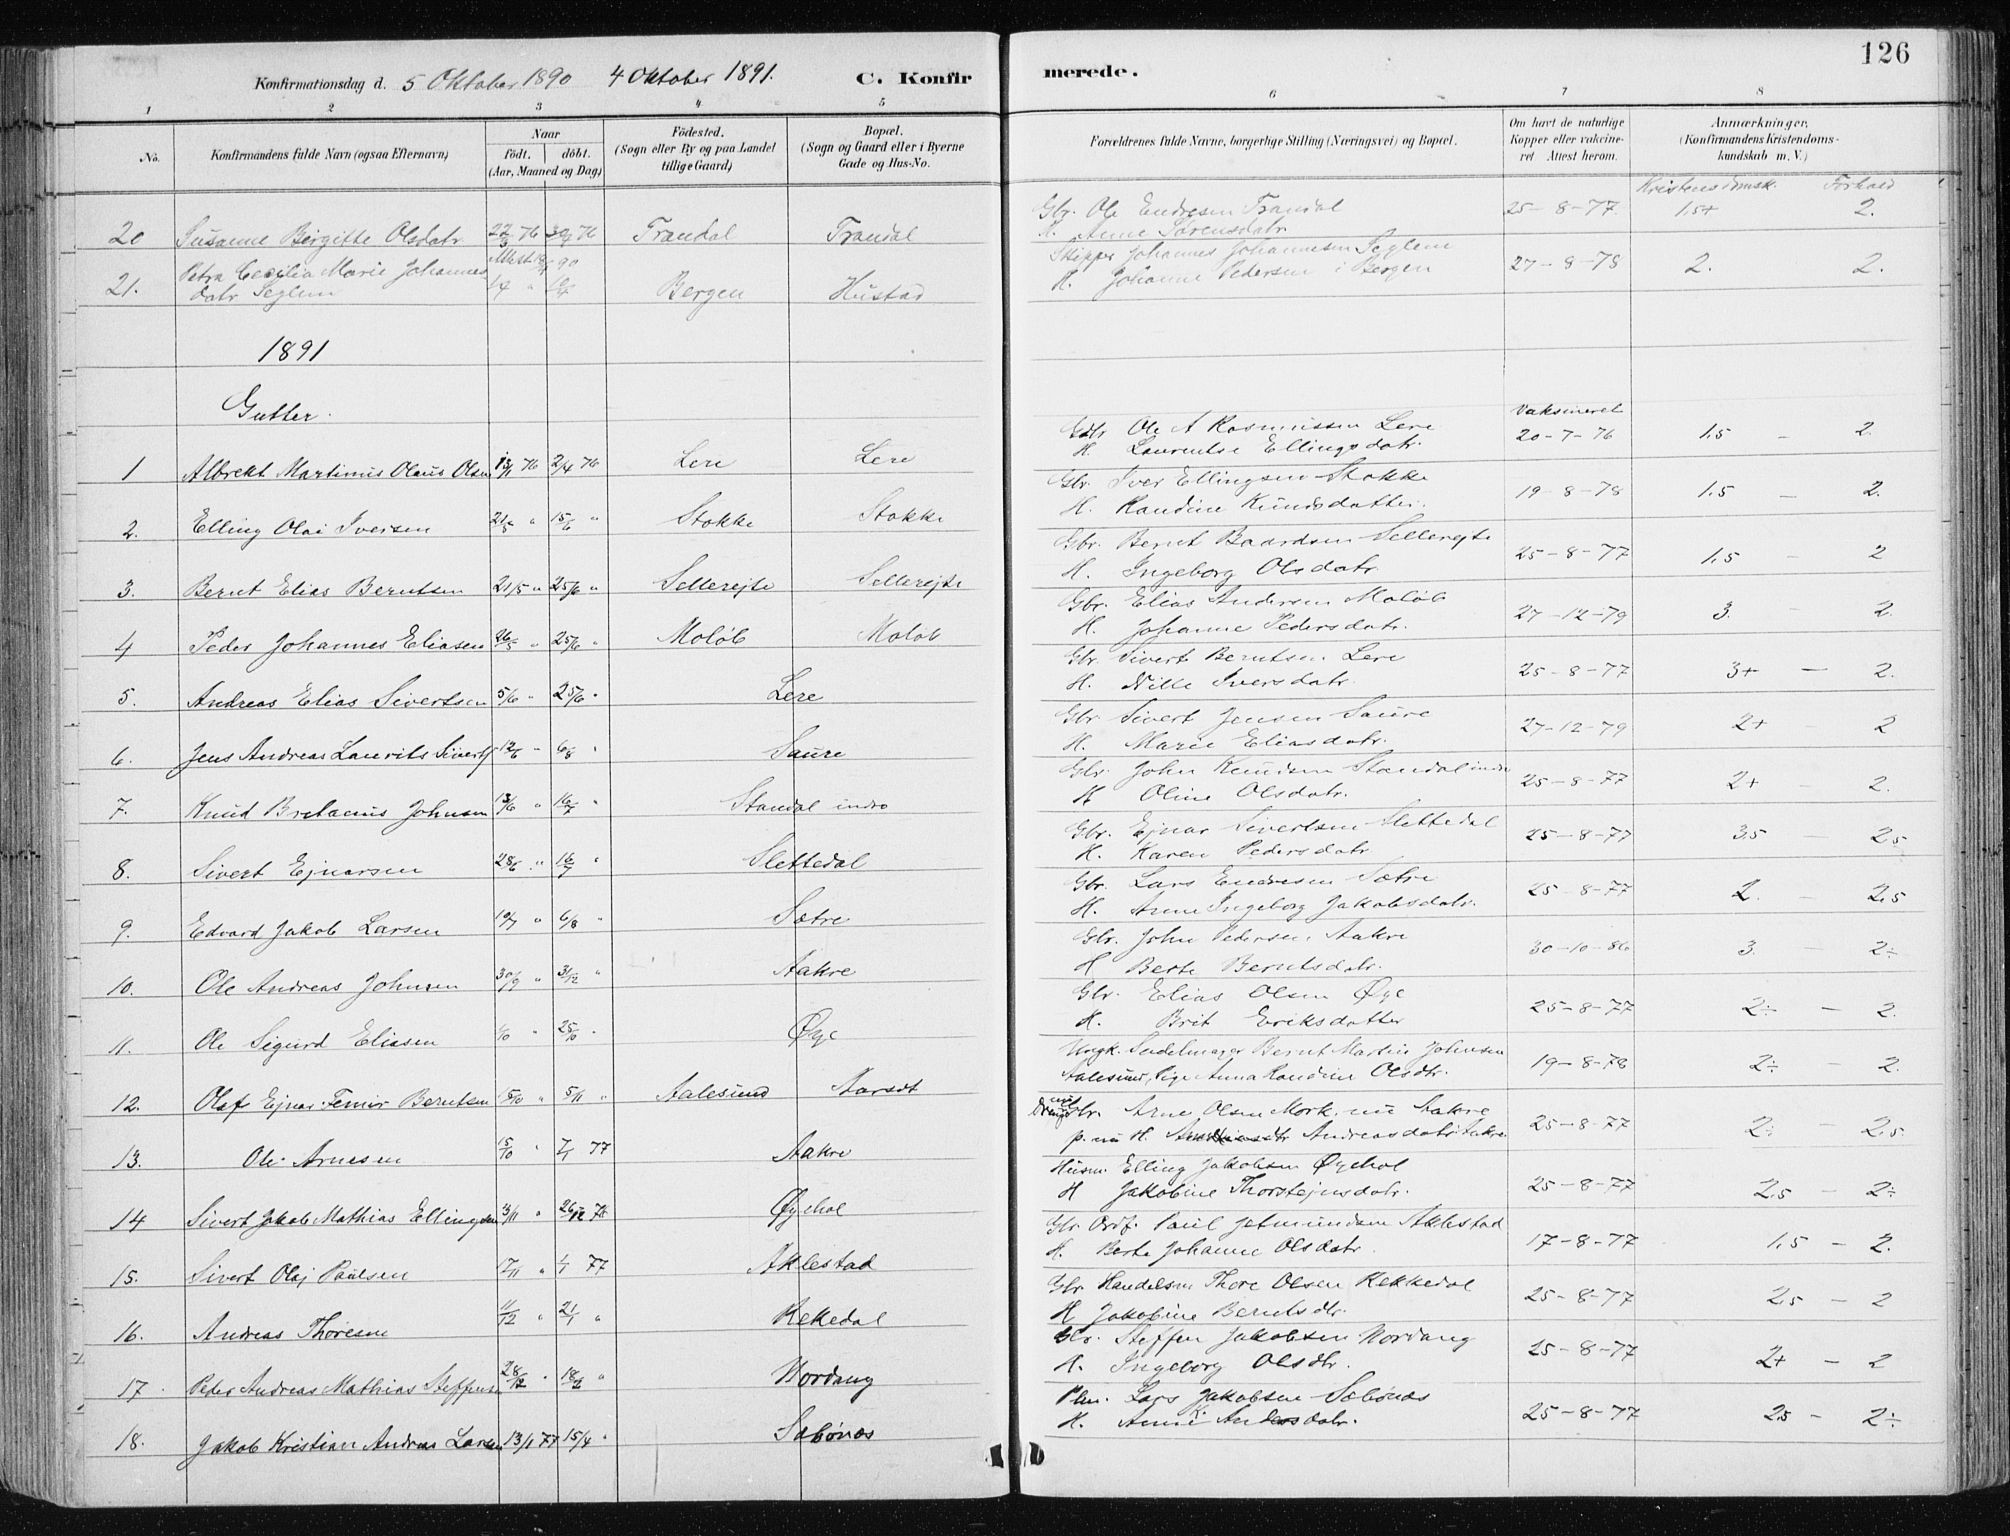 126
Konfirmationsdag d. 5 Oktober 1890 4 Oktober 1891. C. Konfirmerede.
1 2 3 4 5 6 7 8
No. Konfirmandens fulde Navn (ogsaa Efternavn) Naar födt. döbt. (Aar, Maaned og Dag) Födested. (Sogn eller By og paa Landet tillige Gaard) Bopæl. (Sogn og Gaard eller i Byerne Gade og Hus-No. Forældrenes fulde Navne, borgerlige Stilling (Næringsvei) og Bopæl. Om havt de naturlige Kopper eller vakcineret Attest herom. Anmærkninger. (Konfirmandens Kristendomskundskab m. V.)
Kristendomsk. Forhold
20 Susanne Birgitte Olsdatr 22/5 76 30/7 76 Trandal Trandal Gbr. Ole Endresen Trandal 25-8-77 1.5+ 2.
H. Anne Sørensdatr
21. Petra Cecilia Marie Johannesdatr Seglem Bergen Hustad Skipper Johannes Johannesen Seglem 27-8-78 2. 2.
H. Johanne Pedersen i Bergen
1891
Gutter.
Vaksineret
1 Albrekt Martinus Olaus Olsen 13/11 76 2/4 76 Lere Lere Gbr Ole A Rasmussen Lere 20-7-76 1.5 - 2.
H. Laurentse Ellingsdatr.
2. Elling Olai Iversen 21/5 " 15/6 " Stokke Stokke Gbr. Iver Ellingsen Stokke 19-8-78 1.5 - 2.
H. Randine Knudsdatter.
3. Bernt Elias Berntsen 21/5 " 25/6 " Sellerejte Sellerejte Gbr. Bernt Baardsen Sellerejte 25-8-77 1.5 - 2
H. Ingeborg Olsdatr.
4 Peder Johannes Eliasen 26/5 " 25/6 " Moløb Moløb Gbr. Elias Andersen Moløb 27-12-79 3. - 2.
H. Johanne Pedersdatr.
5. Andreas Elias Sivertsen 5/6 " 25/6 " Lere Gbr Sivert Berntsen Lere 25-8-77 3+ - 2.
H. Nille Iversdatr.
6. Jens Andreas Laurits Siverts 12/6 " 6/8 " Saure Gbr Sivert Jensen Saure 27-12-79 2+ - 2
H. Marie Eliasdatr.
7. Knud Bretanus Johnsen 13/6 " 16/7 " Standal indre Gbr. John Knudsen Standal indre 25-8-77 2+ - 2.
H Oline Olsdatr.
8. Sivert Ejnarsen 28/6 " 16/7 " Slettedal Gbr. Ejnar Sivertsen Slettedal 25-8-77 3.5 - 2.5
H. Karen Pedersdatr
9. Edvard Jakob Larsen 10/7 " 6/8 " Sætre Gbr. Lars Endresen Sætre 25-8-77 2. - 2.5
H. Anne Ingeborg Jakobsdatr.
10. Ole Andreas Johnsen 30/9 " 31/12 " Aakre Gbr. John Pedersen Aakre 30-10-86 3. - 2÷
H Berte Berntsdatr.
11. Ole Sigurd Eliasen 1/10 " 25/10 " Øye Gbr. Elias Olsen Øye 25-8-77 2÷ - 2.
H. Brit Eriksdatter
12. Olaf Ejnar Berntsen 15/10 " 5/11 " Aalesund Aarset Ungk. Sadelmager Bernt Martin Johnsen 19-8-78 2÷ - 2.
Aalesund, Pige Anna Randine Olsdtr.
13. Ole Arnesen 15/10 " 7/1 77 Aakre Gbr. Arne Olsen Mork, nu Aakre 25-8-77 2÷ - 2.5
p. nu H. Andreasdatr Aakre
14 Sivert Jakob Mathias Ellingsen 3/11 " 26/12 76 Øyehol Husm. Elling Jakobsen Øyehol 25-8-77 2.5 - 2÷
H Jakobine Thorstejnsdatr.
15. Sivert Olaj Paulsen 17/11 " 1/1 77 Aklestad Gbr Ordf. Paul Jetmundsen Aklestad 17-8-77 1.5 - 2.
H. Berte Johanne Olsdatr.
16. Andreas Thoresen 11/12 " 21/1 " Kekedal Gbr Handelsm Thore Olsen Kekkedal 25-8-77 2.5 - 2
H Jakobine Berntsdtr.
17. Peder Andreas Mathias Steffensen 28/12 " 18/2 " Nordang Gbr. Steffen Jakobsen Nordang 25-8-77 2+ - 2
H. Ingeborg Olsdtr.
18. Jakob Kristian Andreas Larsen 13/1 77 15/4 " Sæbønes Plm. Lars Jakobsen Sæbønes 25-8-77 2.5 - 2÷
H. Anne K. Andersdatr.